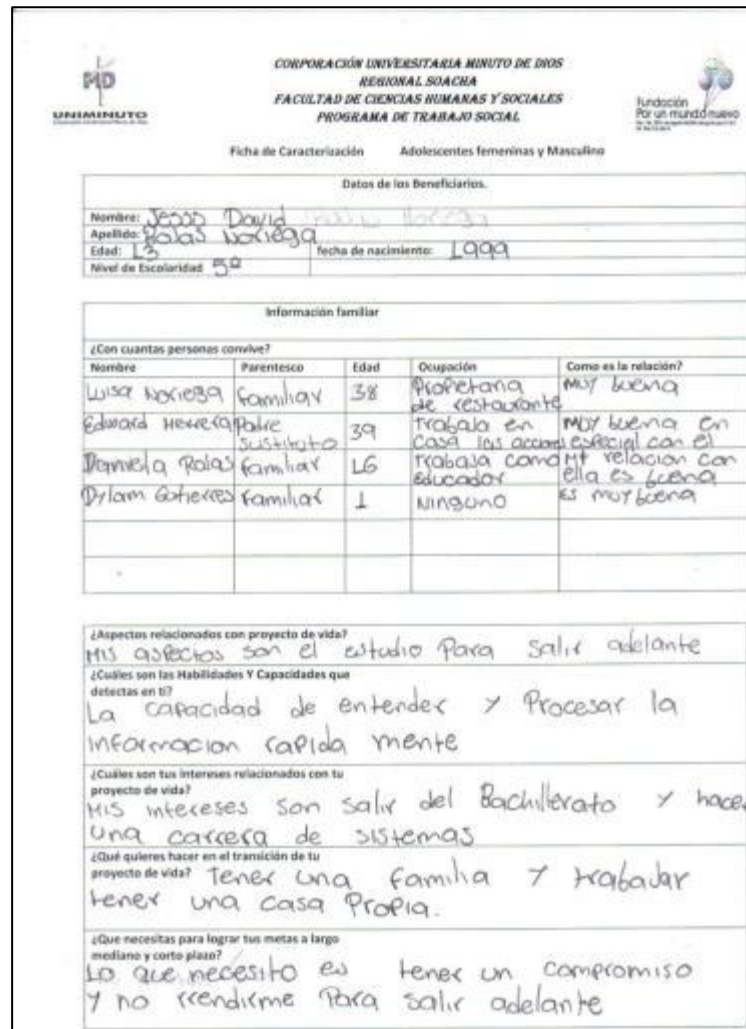 CORPORACIÓN UNIVERSITARIA MINUTO DE DIOS
REGIONAL SOACHA
FACULTAD DE CIENCIAS HUMANAS Y SOCIALES
PROGRAMA DE TRABAJO SOCIAL
UNIMINUTO
Fundación
Por un mundo nuevo
Ficha de Caracterización Adolescentes femeninas y Masculino
Datos de los Beneficiarios.
Nombre: Jesus David
Apellido: Rojas Noriega
Edad: 13 fecha de nacimiento: 1999
Nivel de Escolaridad 5º
Información familiar
¿Con cuantas personas convive?
Nombre Parentesco Edad Ocupación Como es la relación?
Luisa Noriega familiar 38 Propietaria de restaurante MUY buena
Edward Herrera Padre sustituto 39 trabaja en casa las acciones MUY buena en especial con el
Daniela Rojas familiar 16 trabaja como educador Mi relacion con ella es buena
Dylam Gutierres familiar 1 Ninguno Es muy buena
¿Aspectos relacionados con proyecto de vida?
Mis aspectos son el estudio Para salir adelante
¿Cuáles son las Habilidades Y Capacidades que
detectas en ti?
La capacidad de entender y Procesar la
informacion rapida mente
¿Cuáles son tus intereses relacionados con tu
proyecto de vida?
Mis intereses son salir del Bachillerato y hacer
una carrera de sistemas
¿Qué quieres hacer en el transición de tu
proyecto de vida? Tener una familia y trabajar
tener una casa Propia.
¿Que necesitas para lograr tus metas a largo
mediano y corto plazo?
Lo que necesito es tener un compromiso
y no rrendirme Para salir adelante